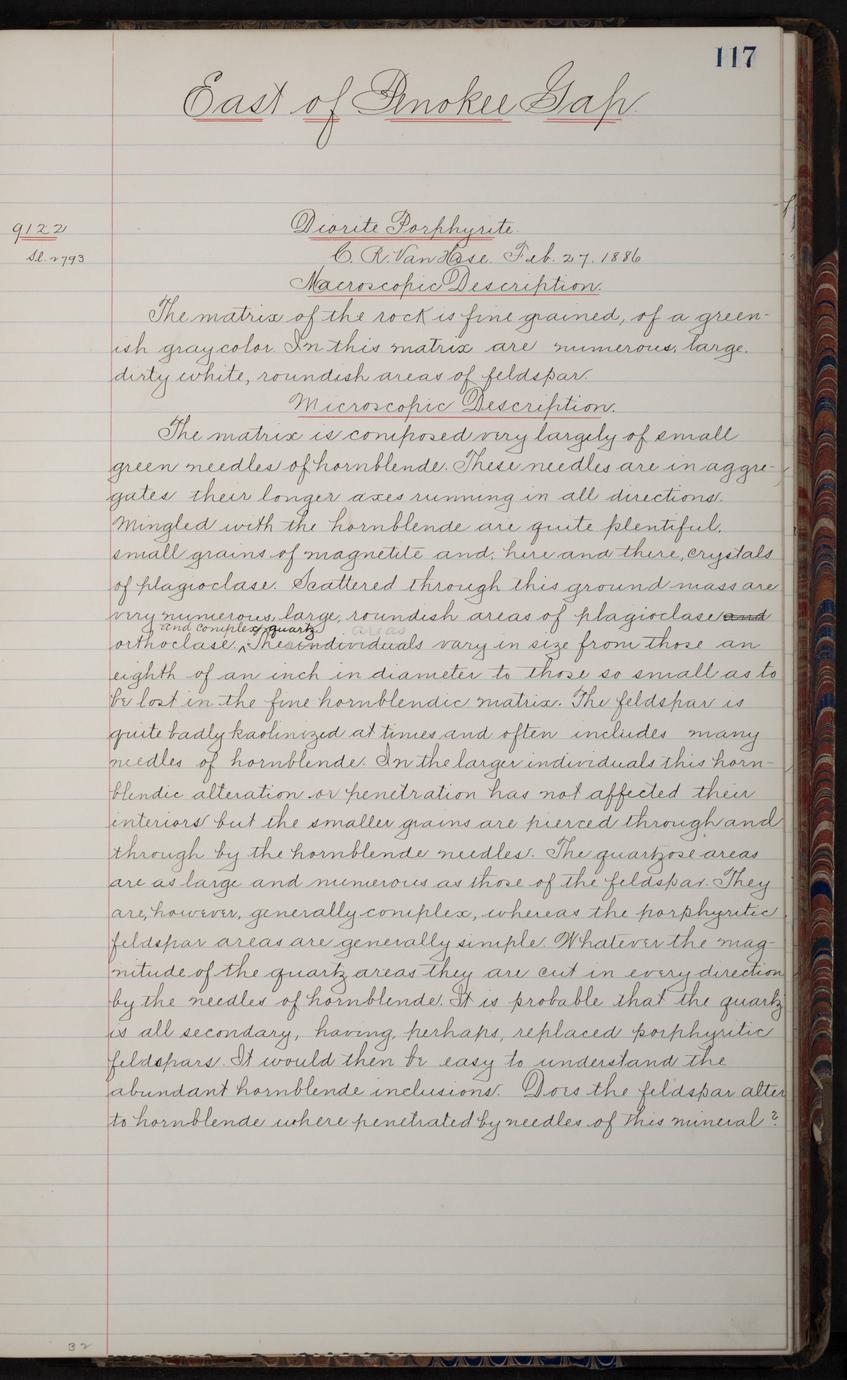 117
East of Penokee Gap.
9122
Diorite Porphyrite.
Sl. 2793
C. R. Van Hise. Feb. 27. 1886
Macroscopic Description.
The matrix of the rock is fine grained, of a green-
ish gray color. In this matrix are numerous, large,
dirty white, roundish areas of feldspar.
Microscopic Description.
The matrix is composed very largely of small
green needles of hornblende. These needles are in aggre-
gates their longer axes running in all directions.
Mingled with the hornblende are quite plentiful,
small grains of magnetite and, here and there, crystals
of plagioclase. Scattered through this ground mass are
very numerous, large, roundish areas of plagioclase and
and complex quartz areas
orthoclase. ^ These individuals vary in size from those an
eighth of an inch in diameter to those so small as to
be lost in the fine hornblendic matrix. The feldspar is
quite badly kaolinized at times and often includes many
needles of hornblende. In the larger individuals this horn-
blendic alteration or penetration has not affected their
interiors but the smaller grains are pierced through and
through by the hornblende needles. The quartzose areas
are as large and numerous as those of the feldspar. They
are, however, generally complex, whereas the porphyritic
feldspar areas are generally simple. Whatever the mag-
nitude of the quartz areas they are cut in every direction
by the needles of hornblende. It is probable that the quartz
is all secondary, having, perhaps, replaced porphyritic
feldspars. It would then be easy to understand the
abundant hornblende inclusions. Does the feldspar alter
to hornblende where penetrated by needles of this mineral?
32